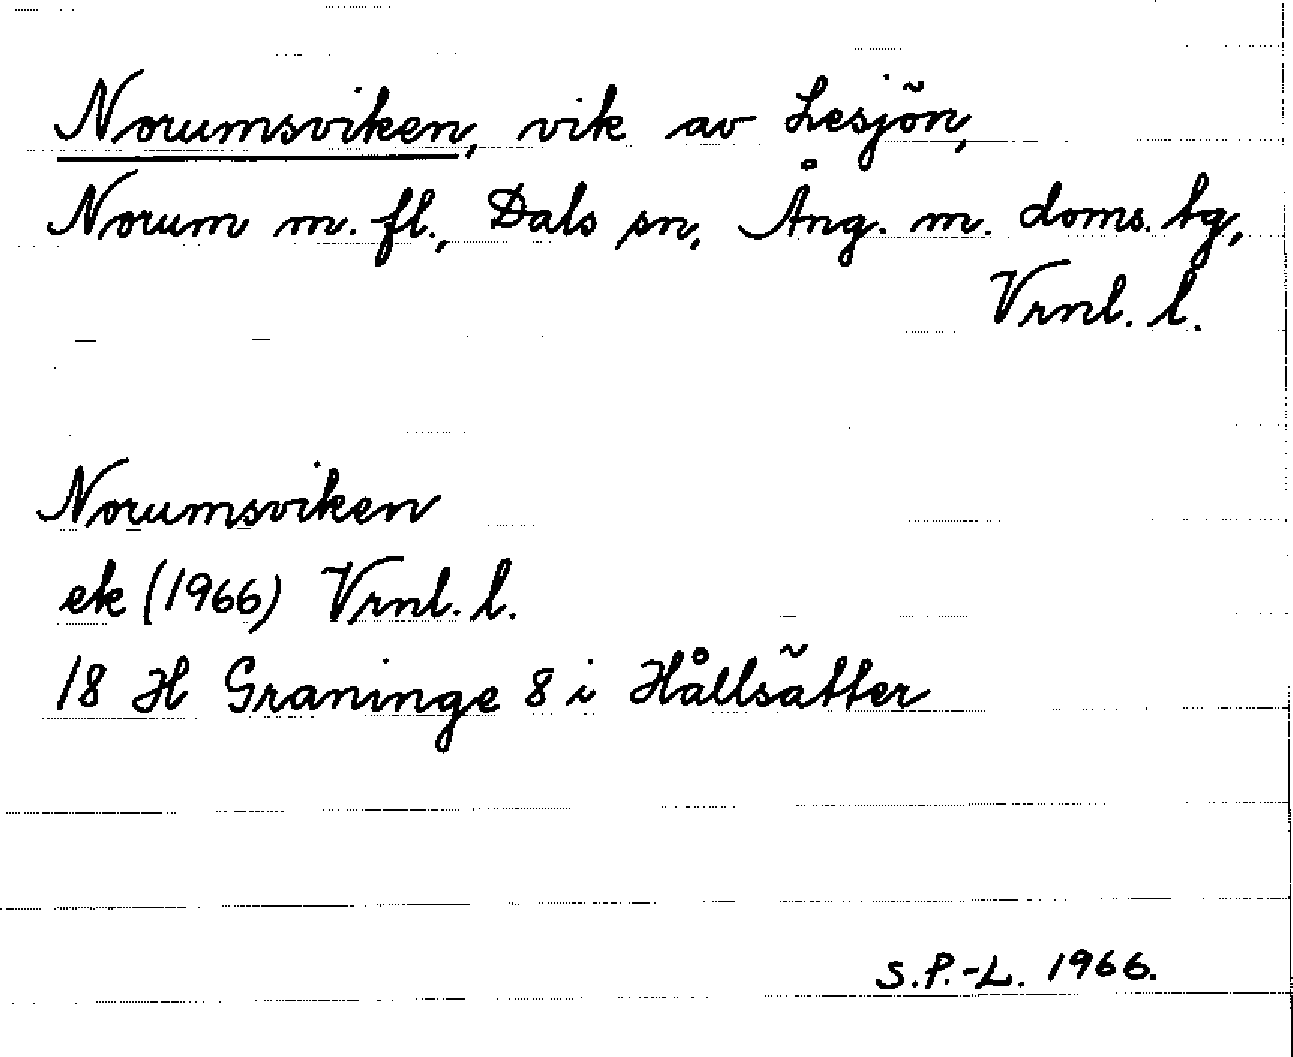 Norumsviken, vik av Lesjön,
Norum m. fl., Dals sn, Ång. m. doms. tg,
Vrnl. l.
Norumsviken
ek (1966) Vrnl. l.
18 H Graninge 8 i Hållsätter
S.P.-L. 1966.